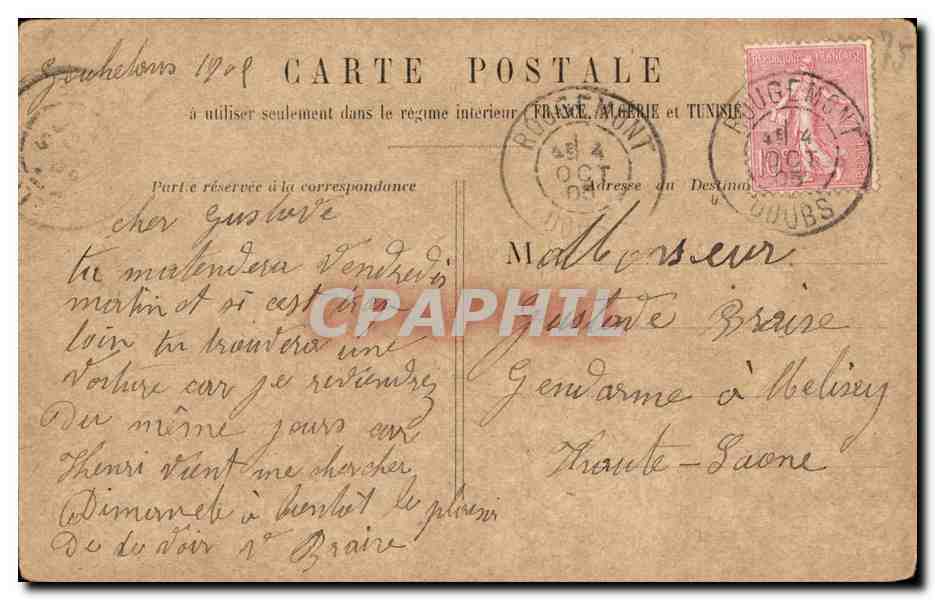 1905 CARTE POSTALE
à utiliser seulement dans le régime intérieur FRANCE, ALGÉRIE et TUNISIE
Partie réservée à la correspondance
Adresse du Destina
75
RÉPUBLIQUE FRANÇAISE
10
ROUGEMONT
4
OCT
05
DOUBS
ROUGEMONT
4
OCT
05
DOUBS
cher Gustave
tu matendera Vendredis
matin et si cest trop
loin tu trouvera une
voiture car je reviendrez
Du même jours car
Henri vient me chercher
Dimanche à bientôt le plaisir
De te voir V Braire
Monsieur
Gustave Braire
Gendarme à Melisey
Haute-Saone
CPAPHIL